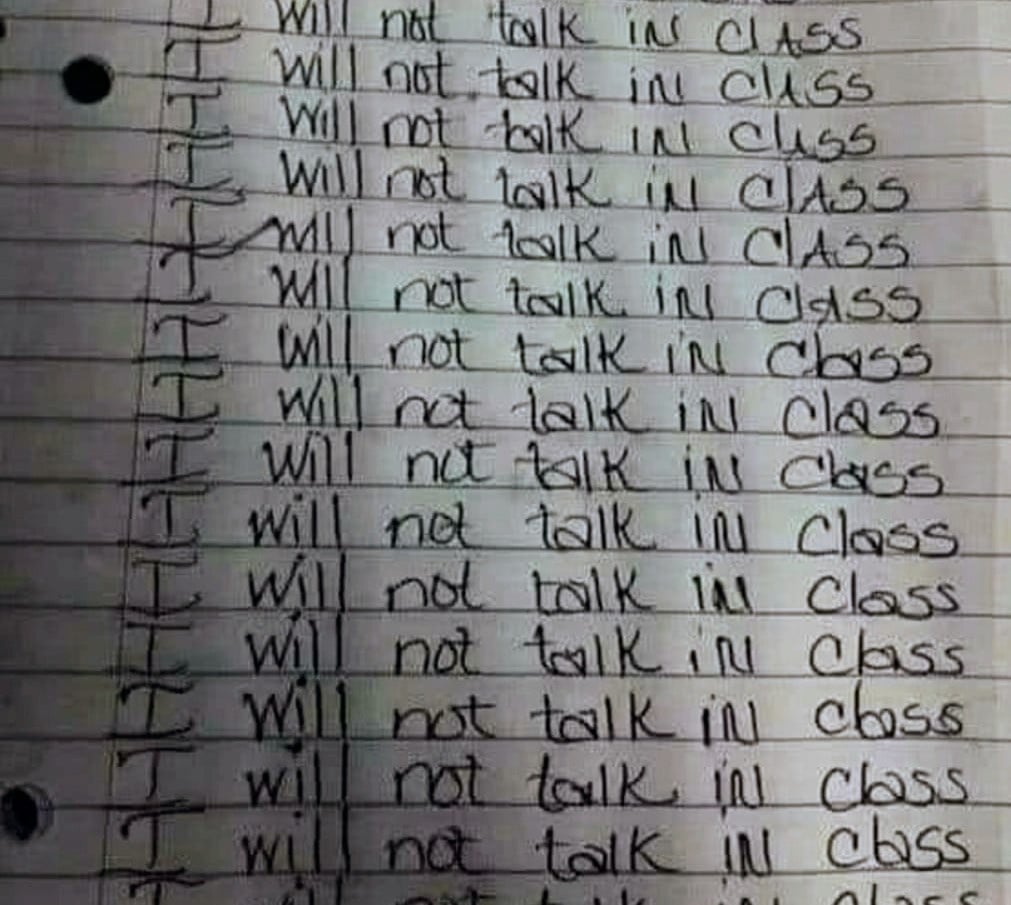 I Will not talk iN ClASS
I Will not talk iN ClASS
I Will not talk iN ClASS
I Will not talk iN ClASS
I Will not talk iN ClASS
I Will not talk iN ClaSS
I Will not talk iN Class
I Will not talk iN Class
I Will not talk iN Class
I Will not talk iN Class
I Will not talk iN Class
I Will not talk iN Class
I Will not talk iN class
I will not talk iN Class
I will not talk iN Class
I will not talk iN class